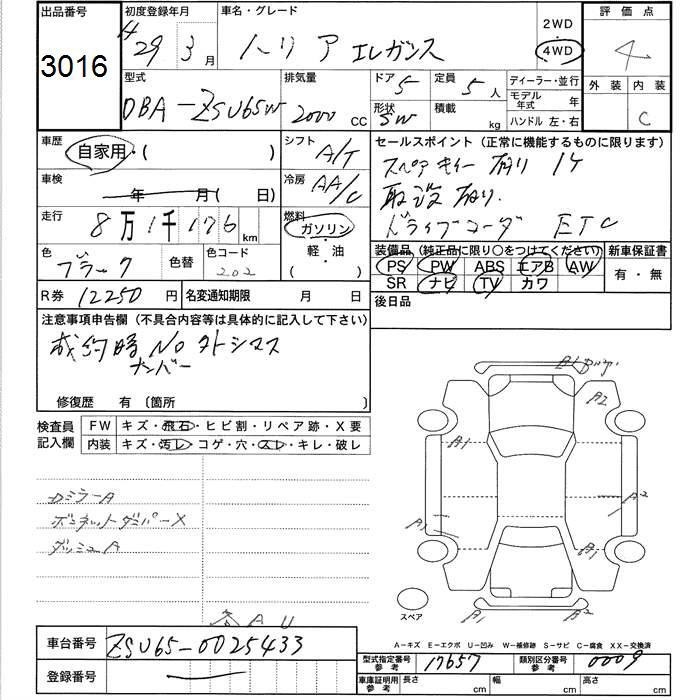 出品番号 初度登録年月 車名・グレード 2WD 評価点
3016 H 29年 3月 ハリアー エレガンス 4WD 4
型式 排気量 ドア 5 定員 5人 ディーラー・並行 外装 内装
DBA-ZSU65W 2000 CC 形状 SW 積載 kg モデル年式 年 ハンドル 左・右 C
車歴 自家用・( ) シフト A/T セールスポイント(正常に機能するものに限ります)
車検 年 月( 日) 冷房 AA/C スペアキー 有り 1ケ
取説 有り.
走行 8万1千176km 燃料 ガソリン・軽・油 ・( ) ドライブコーダ ETC
色 ブラック 色替 色コード 202 装備品(純正品に限り○をつけてください) 新車保証書
PS PW ABS エアB AW 有・無
SR ナビ TV カワ
R券 12250円 名変通知期限 月 日 後日品
注意事項申告欄(不具合内容等は具体的に記入して下さい)
成約時 No ハトシマス
ナンバー
修復歴 有〔箇所 〕
検査員記入欄 FW キズ・飛石・ヒビ割・リペア跡・X要
内装 キズ・汚レ・コゲ・穴・スレ・キレ・破レ
A2
A1
A2
A1
B1
ロミラーA
ボンネットダンパーX
ダッシュA
各AU
A1 B2
スペア
A-キズ E-エクボ U-凹み W-補修跡 S-サビ C-腐食 XX-交換済
車台番号 ZSU65-0025433
型式指定番号 参考 17657 類別区分番号 参考 0009
登録番号
車庫証明用 参考 長さ cm 幅 cm 高さ cm